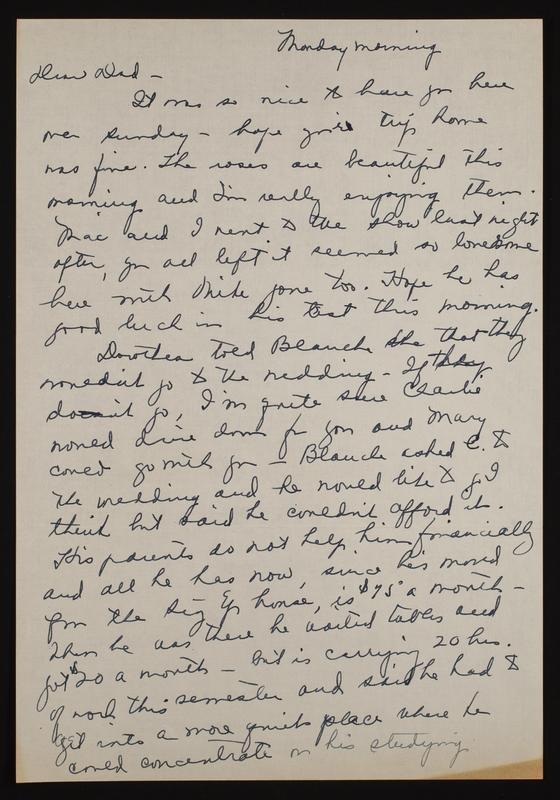 Monday morning
Dear Dad –
It was so nice to have you here
over Sunday – hope your trip home
was fine. The roses are beautiful this
morning and I'm really enjoying them.
Mac and I went to the show last night
after you all left it seemed so lonesome
here with Mike gone too. Hope he has
good luck in his test this morning.
Dorothea told Blanche she that they
wouldn't go to the wedding – If they
doesn't go, I'm quite sure Charlie
would drive down for you and Mary
could go with you – Blanche asked C. to
the wedding and he would like to go I
think but said he couldn't afford it.
His parents do not help him financially
and all he has now, since he's moved
from the Sig Ep house, is $75 a month –
When he was there he waited tables and
got $20 a month – but is carrying 20 hrs.
of work this semester and said he had to
get into a more quiet place where he
could concentrate on his studying